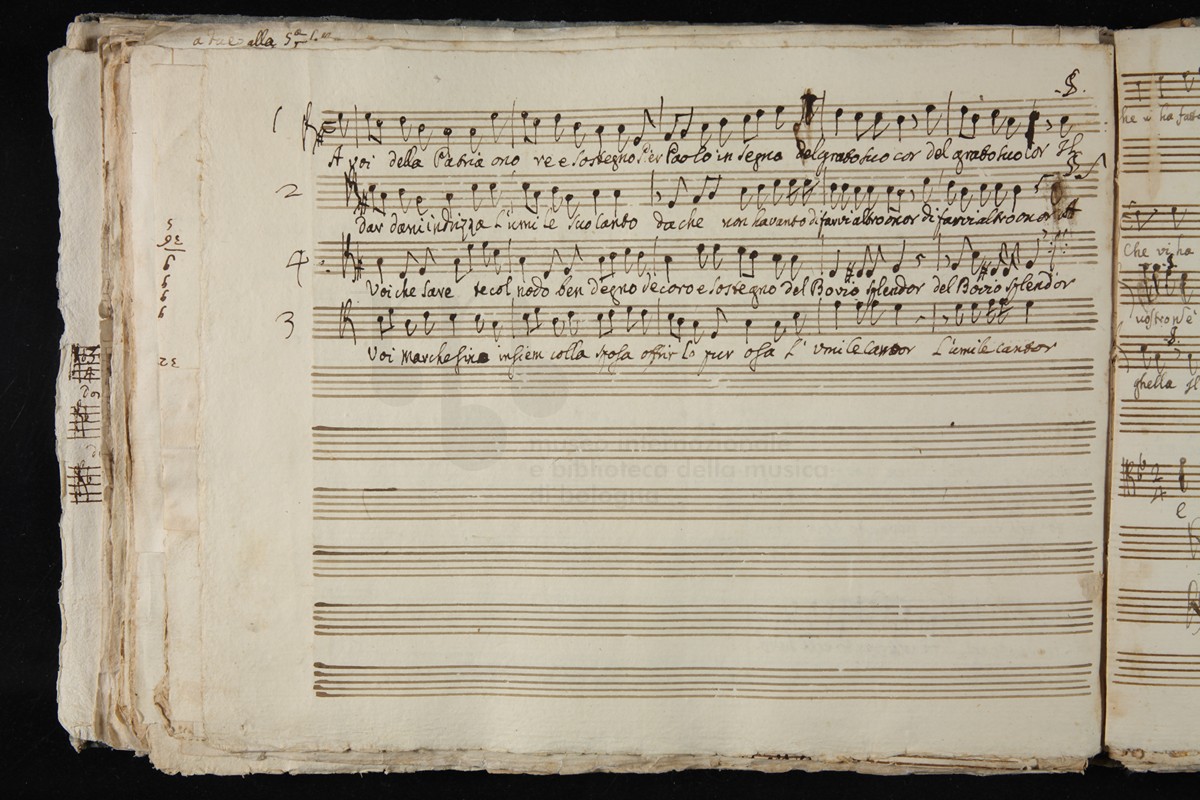 a due alla 5ª
1
A voi della Patria ono re e sostegno Ser Paolo in segno del grato suo cor del grato suo cor
2
dar davi indrizza L'umi le suo canto da che non ha vanto di farvi altro onor di farvi altro onor
4
Voi che save te col nodo ben degno decoro e sostegno del Bovio splendor del Bovio splendor
3
Voi Marchesina insiem colla sposa offrir lo pur osa L'umile cantor L'umile cantor
museo internazionale
e biblioteca della musica
di bologna
32
Che vi ha
nostro n'è
ghella
2
4
e